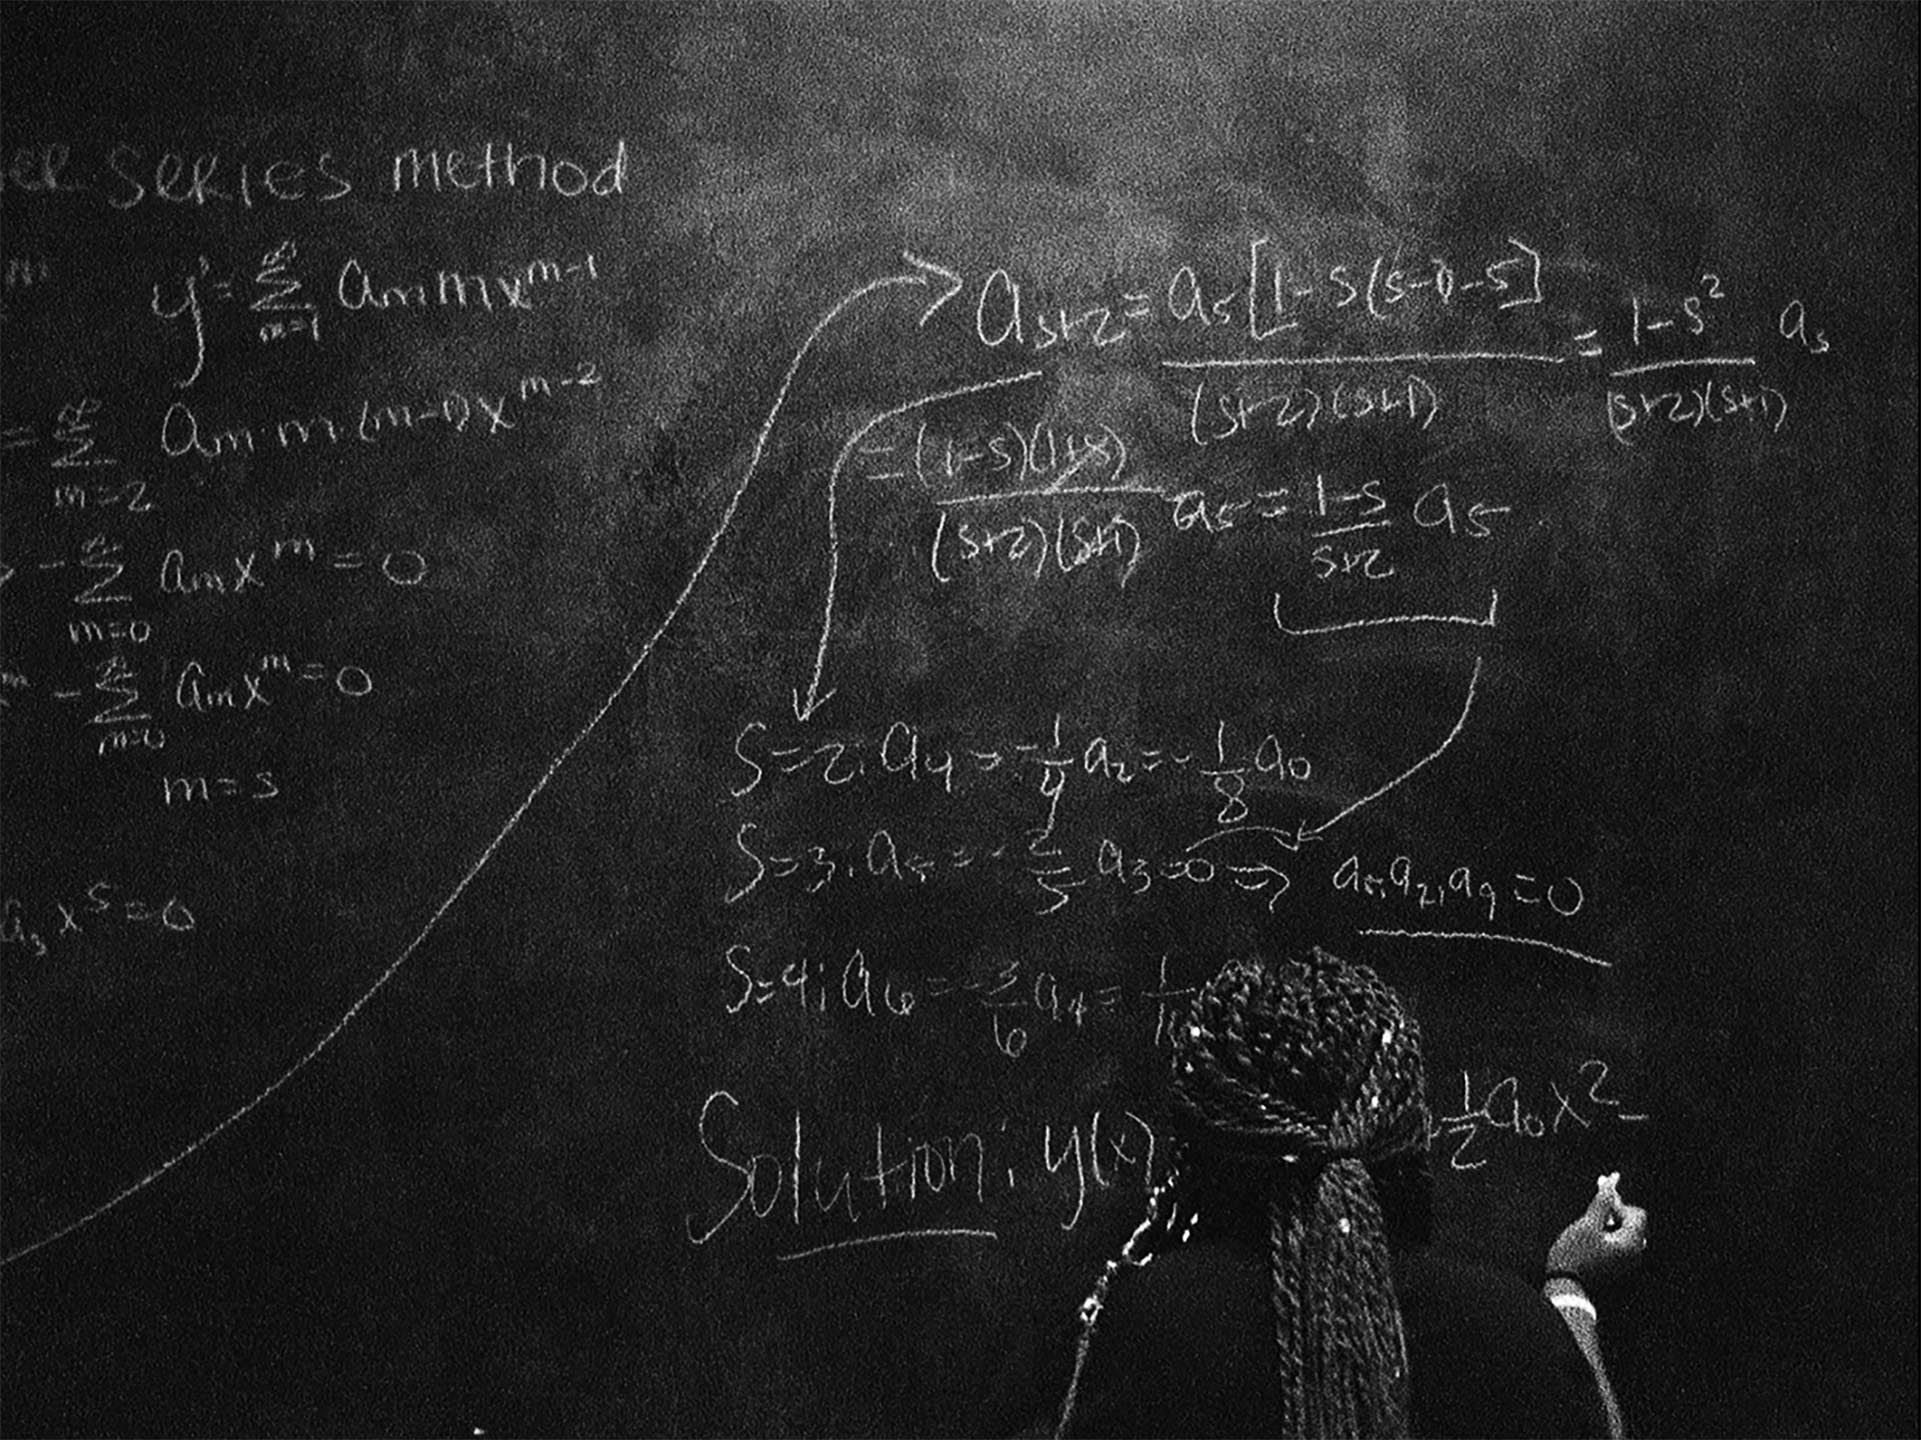 er series method
m
y' = ∑_{m=1}^{∞} a_m m x^{m-1}
= ∑_{m=2}^{∞} a_m · m · (m-1) x^{m-2}
- ∑_{m=0}^{∞} a_m x^m = 0
m - ∑_{m=0}^{∞} a_m x^m = 0
m = s
a_s x^s = 0
a_{s+2} = a_s [1-s(s-1)-s] / (s+2)(s+1) = 1-s^2 / (s+2)(s+1) a_s
= (1-s)(1+s) / (s+2)(s+1) a_s = 1-s / s+2 a_s
S=2; a_4 = -1/4 a_2 = -1/8 a_0
S=3; a_5 = -2/5 a_3 = 0 => a_5, a_7, a_9 = 0
S=4; a_6 = -3/6 a_4 = 1/1
Solution: y(x) + 1/2 a_0 x^2 -